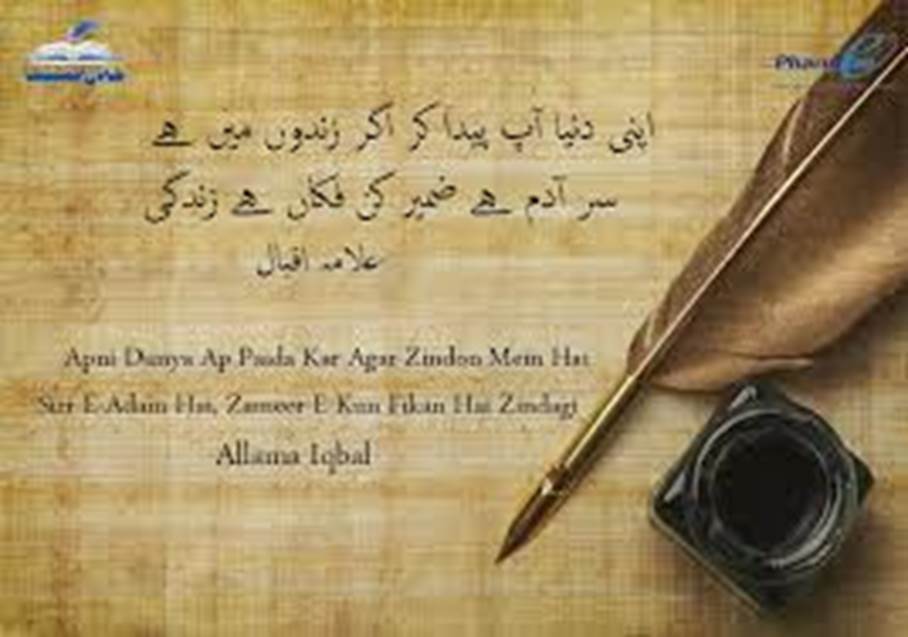 اپنی دنیا آپ پیدا کر اگر زندوں میں ہے
سر آدم ہے ضمیر کن فکاں ہے زندگی
علامہ اقبال
Apni Dunya Ap Paida Kar Agar Zindon Mein Hai
Sirr E Adam Hai, Zameer E Kun Fikan Hai Zindagi
Allama Iqbal